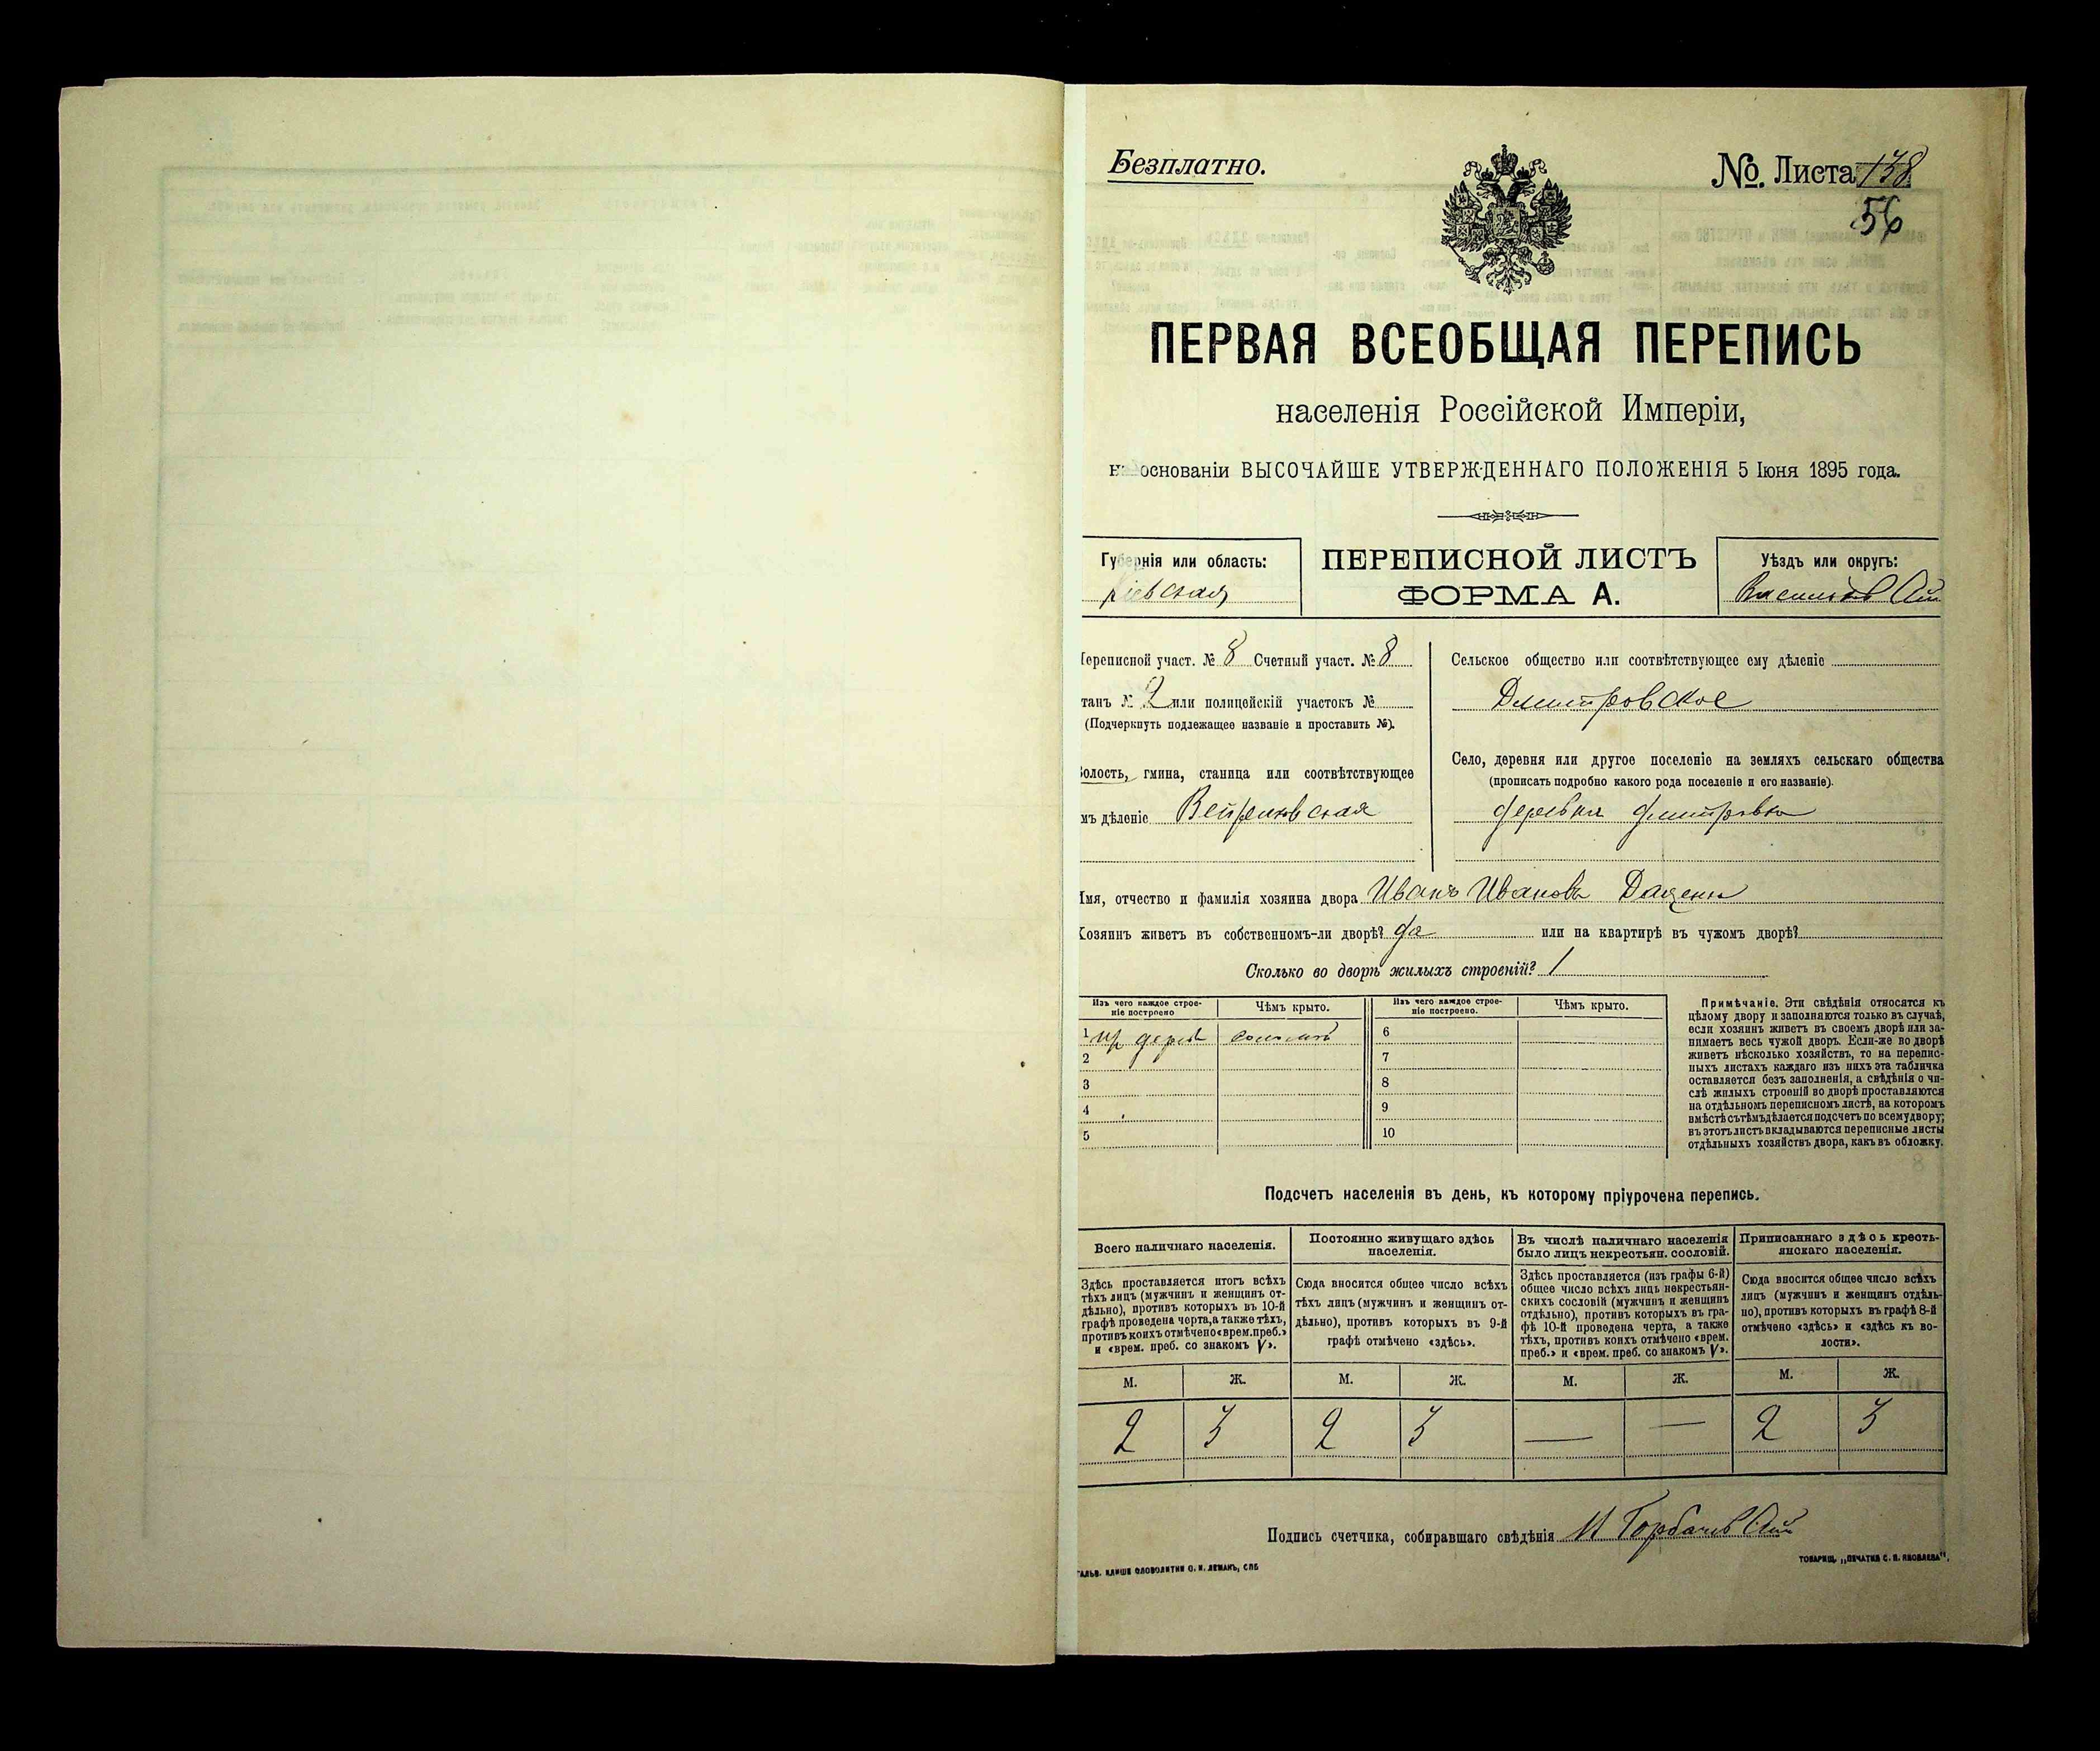 Безплатно.
№. Листа 138
56
ПЕРВАЯ ВСЕОБЩАЯ ПЕРЕПИСЬ
населенія Россійской Имперіи,
основаніи ВЫСОЧАЙШЕ УТВЕРЖДЕННАГО ПОЛОЖЕНІЯ 5 Іюня 1895 года.
Губернія или область:
Кіевская
ПЕРЕПИСНОЙ ЛИСТЪ
ФОРМА А.
Уѣздъ или округъ:
Переписной участ. № 8 Счетный участ. № 8
танъ № 2 или полицейскій участокъ №
(Подчеркнуть подлежащее названіе и проставить №).
Волость, гмина, станица или соотвѣтствующее
мъ дѣленіе
Сельское общество или соотвѣтствующее ему дѣленіе
Дмитровское
Село, деревня или другое поселеніе на земляхъ сельскаго общества
(прописать подробно какого рода поселеніе и его названіе).
деревня Дмитровка
Имя, отчество и фамилія хозяина двора Иванъ Ивановъ
Хозяинъ живетъ въ собственномъ-ли дворѣ? да или на квартирѣ въ чужомъ дворѣ?
Сколько во дворѣ жилыхъ строеній? 1
Изъ чего каждое строе-
ніе построено
Чѣмъ крыто.
Изъ чего каждое строе-
ніе построено.
Чѣмъ крыто.
1
6
2
7
3
8
4
9
5
10
Примѣчаніе. Эти свѣдѣнія относятся къ
цѣлому двору и заполняются только въ случаѣ,
если хозяинъ живетъ въ своемъ дворѣ или за-
нимаетъ весь чужой дворъ. Если-же во дворѣ
живетъ нѣсколько хозяйствъ, то на перепис-
ныхъ листахъ каждаго изъ нихъ эта табличка
оставляется безъ заполненія, а свѣдѣнія о чи-
слѣ жилыхъ строеній во дворѣ проставляются
на отдѣльномъ переписномъ листѣ, на которомъ
вмѣстѣ съ тѣмъ дѣлается подсчетъ по всему двору;
въ этотъ листъ вкладываются переписные листы
отдѣльныхъ хозяйствъ двора, какъ въ обложку.
Подсчетъ населенія въ день, къ которому пріурочена перепись.
Всего наличнаго населенія.
Постоянно живущаго здѣсь
населенія.
Въ числѣ наличнаго населенія
было лицъ некрестьян. сословій.
Приписаннаго здѣсь кресть-
янскаго населенія.
Здѣсь проставляется итогъ всѣхъ
тѣхъ лицъ (мужчинъ и женщинъ от-
дѣльно), противъ которыхъ въ 10-й
графѣ проведена черта, а также тѣхъ,
противъ коихъ отмѣчено «врем. преб.»
и «врем. преб. со знакомъ V».
Сюда вносится общее число всѣхъ
тѣхъ лицъ (мужчинъ и женщинъ от-
дѣльно), противъ которыхъ въ 9-й
графѣ отмѣчено «здѣсь».
Здѣсь проставляется (изъ графы 6-й)
общее число всѣхъ лицъ некрестьян-
скихъ сословій (мужчинъ и женщинъ
отдѣльно), противъ которыхъ въ гра-
фѣ 10-й проведена черта, а также
тѣхъ, противъ коихъ отмѣчено «врем.
преб.» и «врем. преб. со знакомъ V».
Сюда вносится общее число всѣхъ
лицъ (мужчинъ и женщинъ отдѣль-
но), противъ которыхъ въ графѣ 8-й
отмѣчено «здѣсь» и «здѣсь къ во-
лости».
М. Ж. М. Ж. М. Ж. М. Ж.
2 3 2 3 — — 2 3
Подпись счетчика, собиравшаго свѣдѣнія
ГАЛЬВ. КЛИШЕ СЛОВОЛИТНИ О. И. ЛЕМАНЪ, СПБ
ТОВАРИЩ. „ПЕЧАТНЯ С. П. ЯКОВЛЕВА".